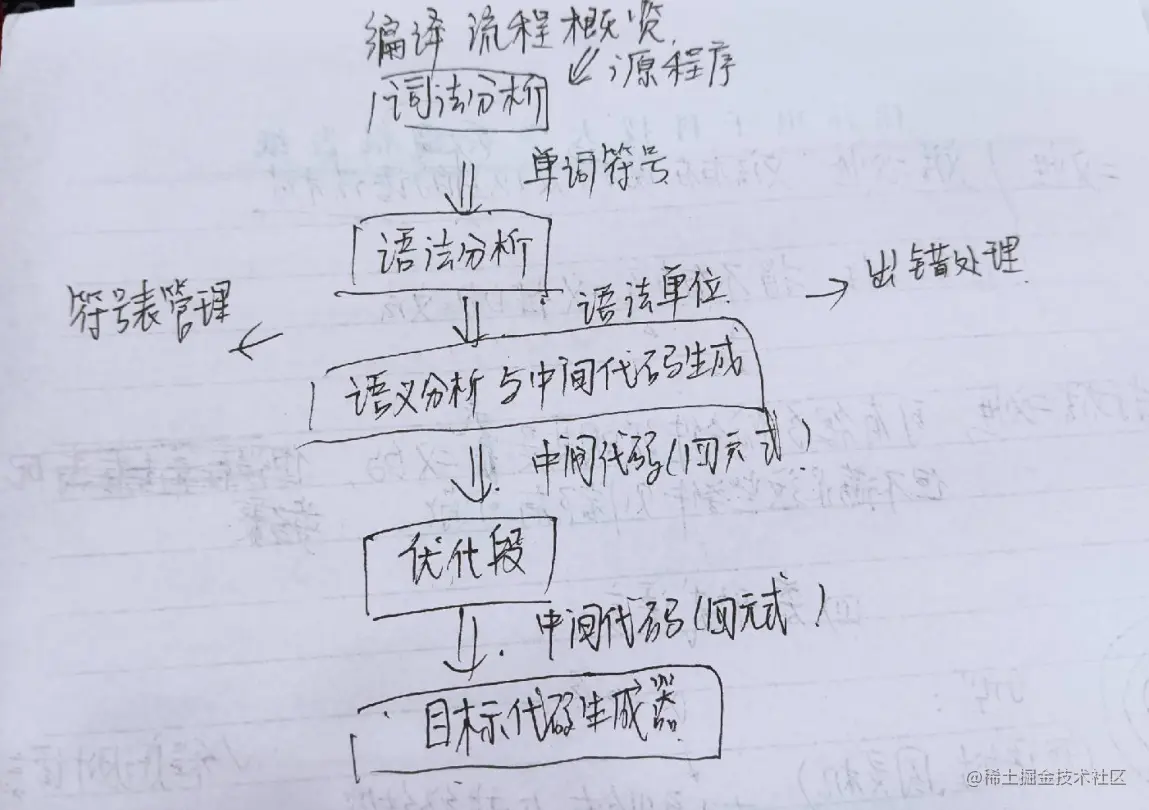 编译流程概览
源程序
词法分析
单词符号
语法分析
语法单位
出错处理
符号表管理
语义分析与中间代码生成
中间代码(四元式)
优化段
中间代码(四元式)
目标代码生成器
@稀土掘金技术社区